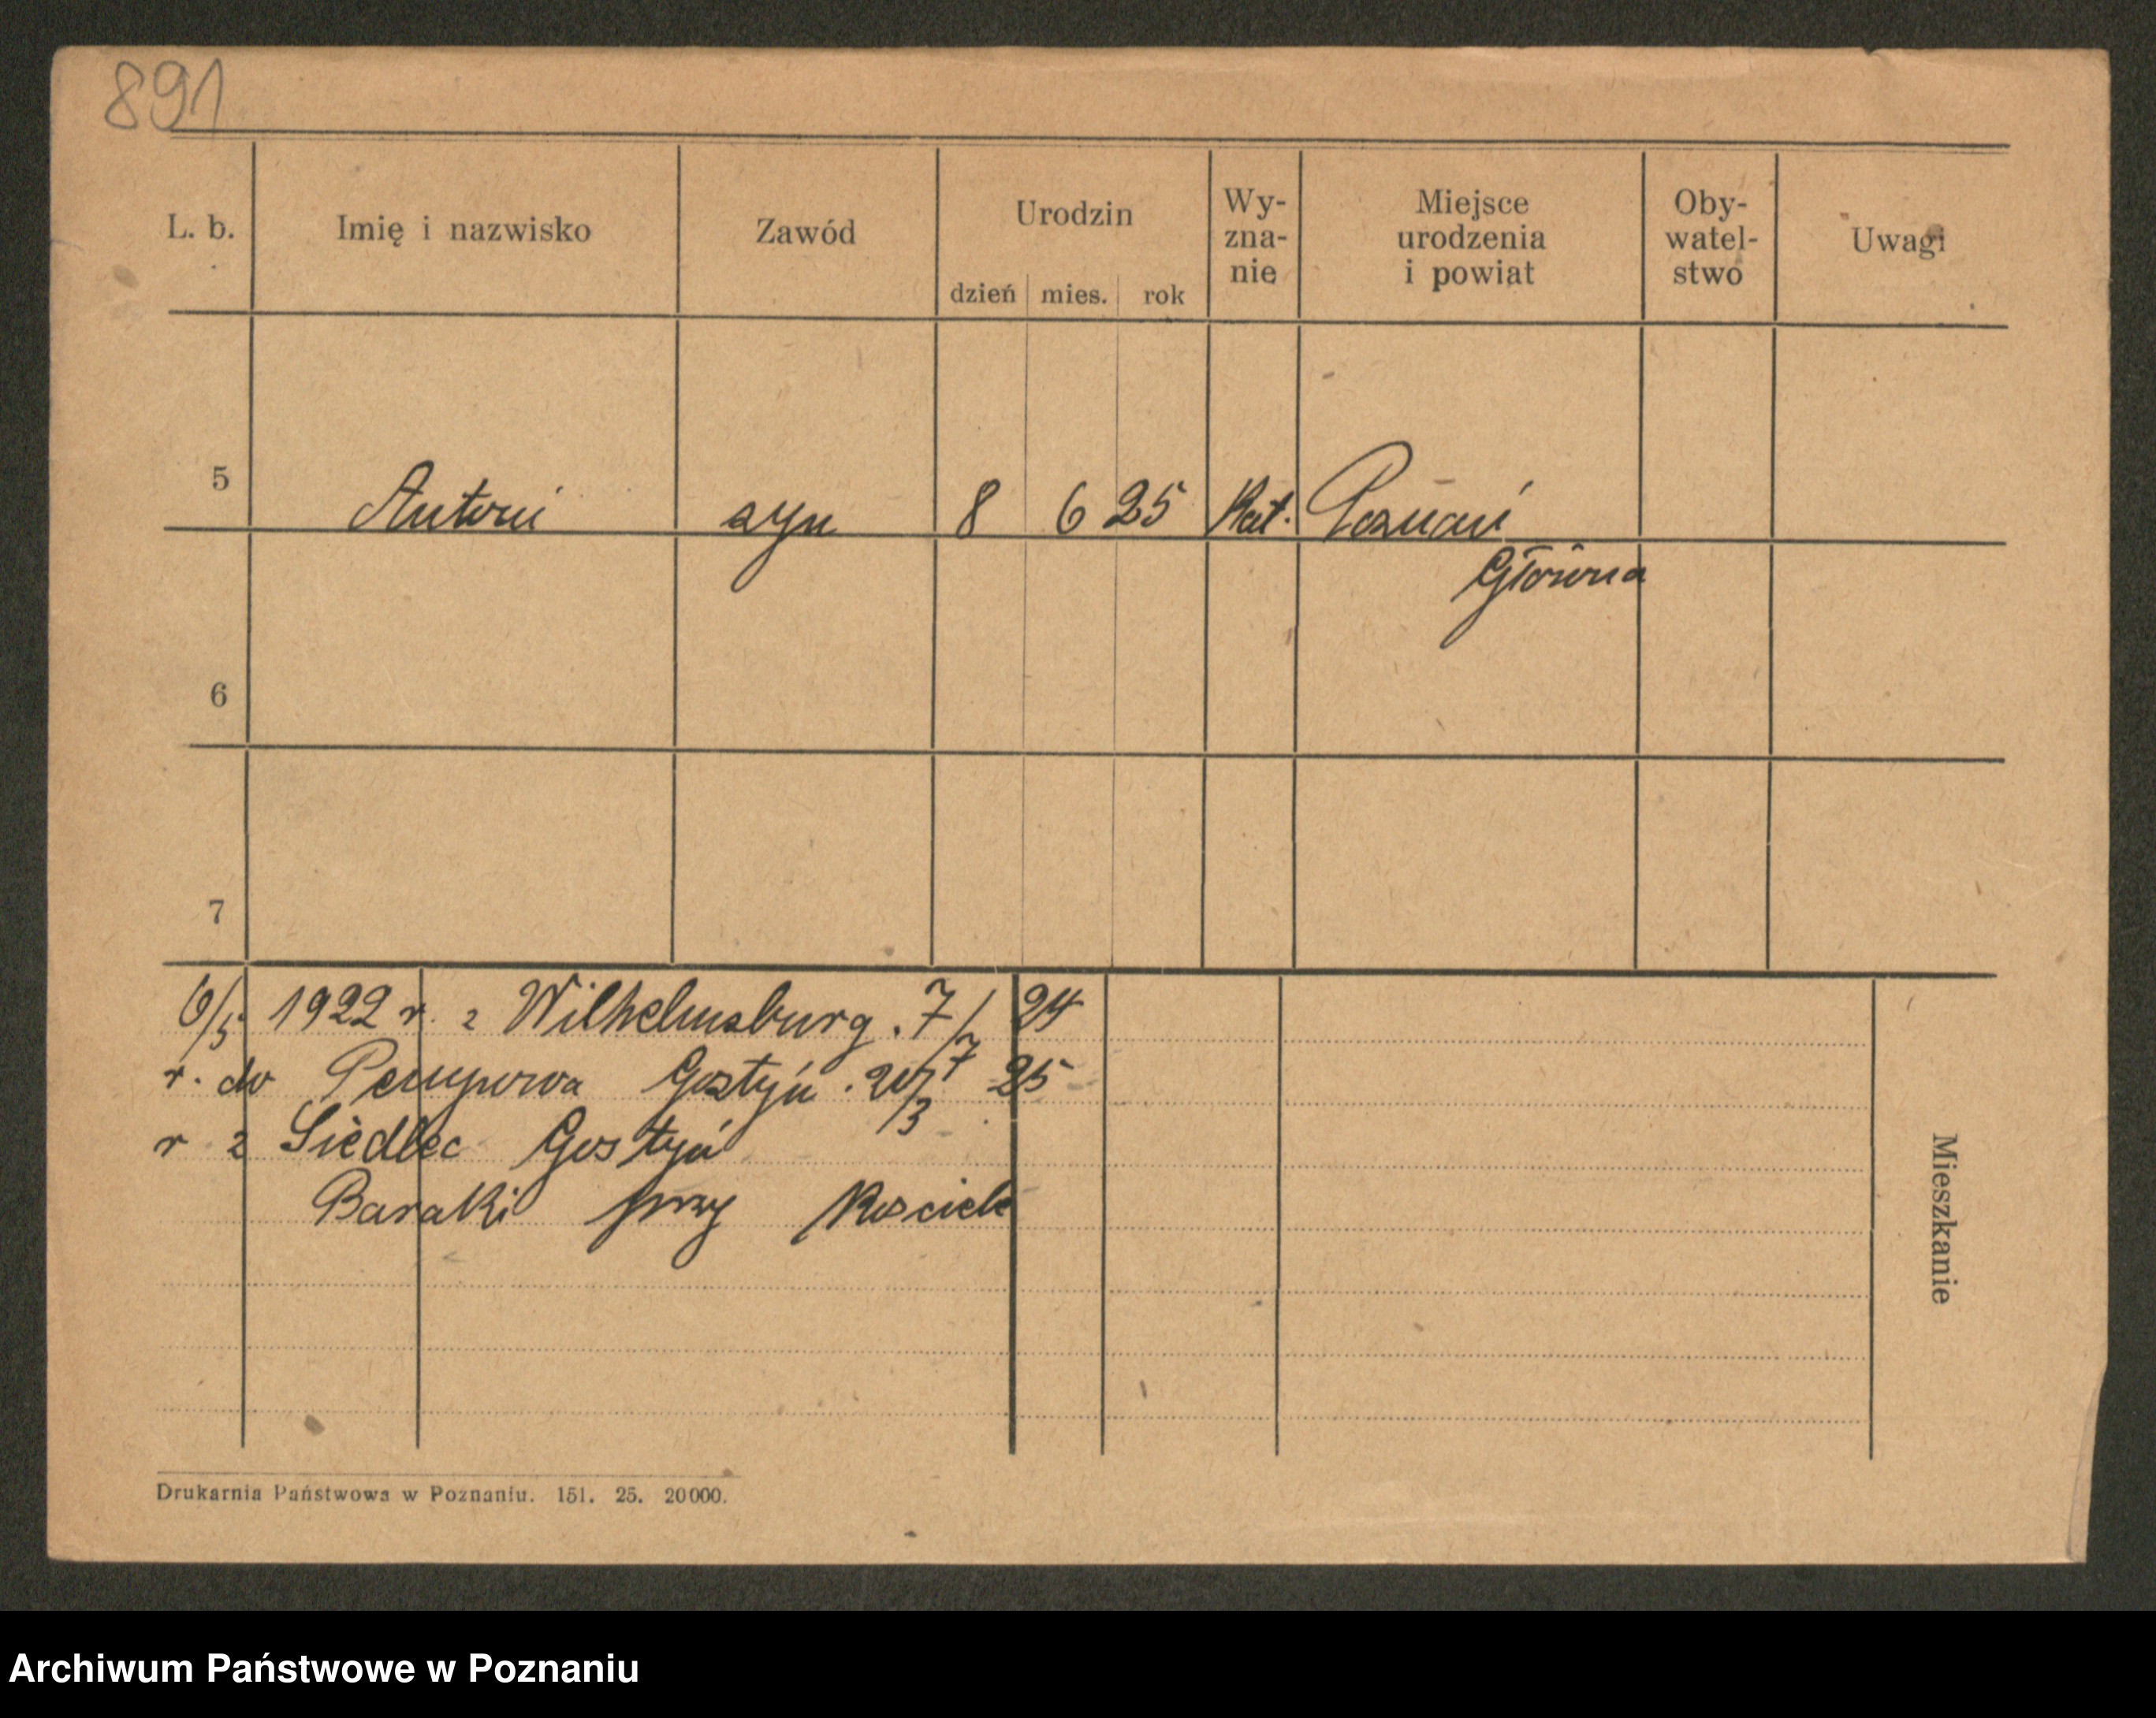 891
L. b. Imię i nazwisko Zawód Urodzin Wy- Miejsce Oby- Uwagi
zna- urodzenia watel-
dzień mies. rok nie i powiat stwo
5 Antoni syn 8 6 25 Kat. Poznań
Główna
6
7
6/5 1922 r. z Wilhelmsburg. 7/7 24
r. do Pempowa Gostyń. 20/3 25
r z Siedlec Gostyń
Baraki przy
Mieszkanie
Drukarnia Państwowa w Poznaniu. 151. 25. 20000.
Archiwum Państwowe w Poznaniu